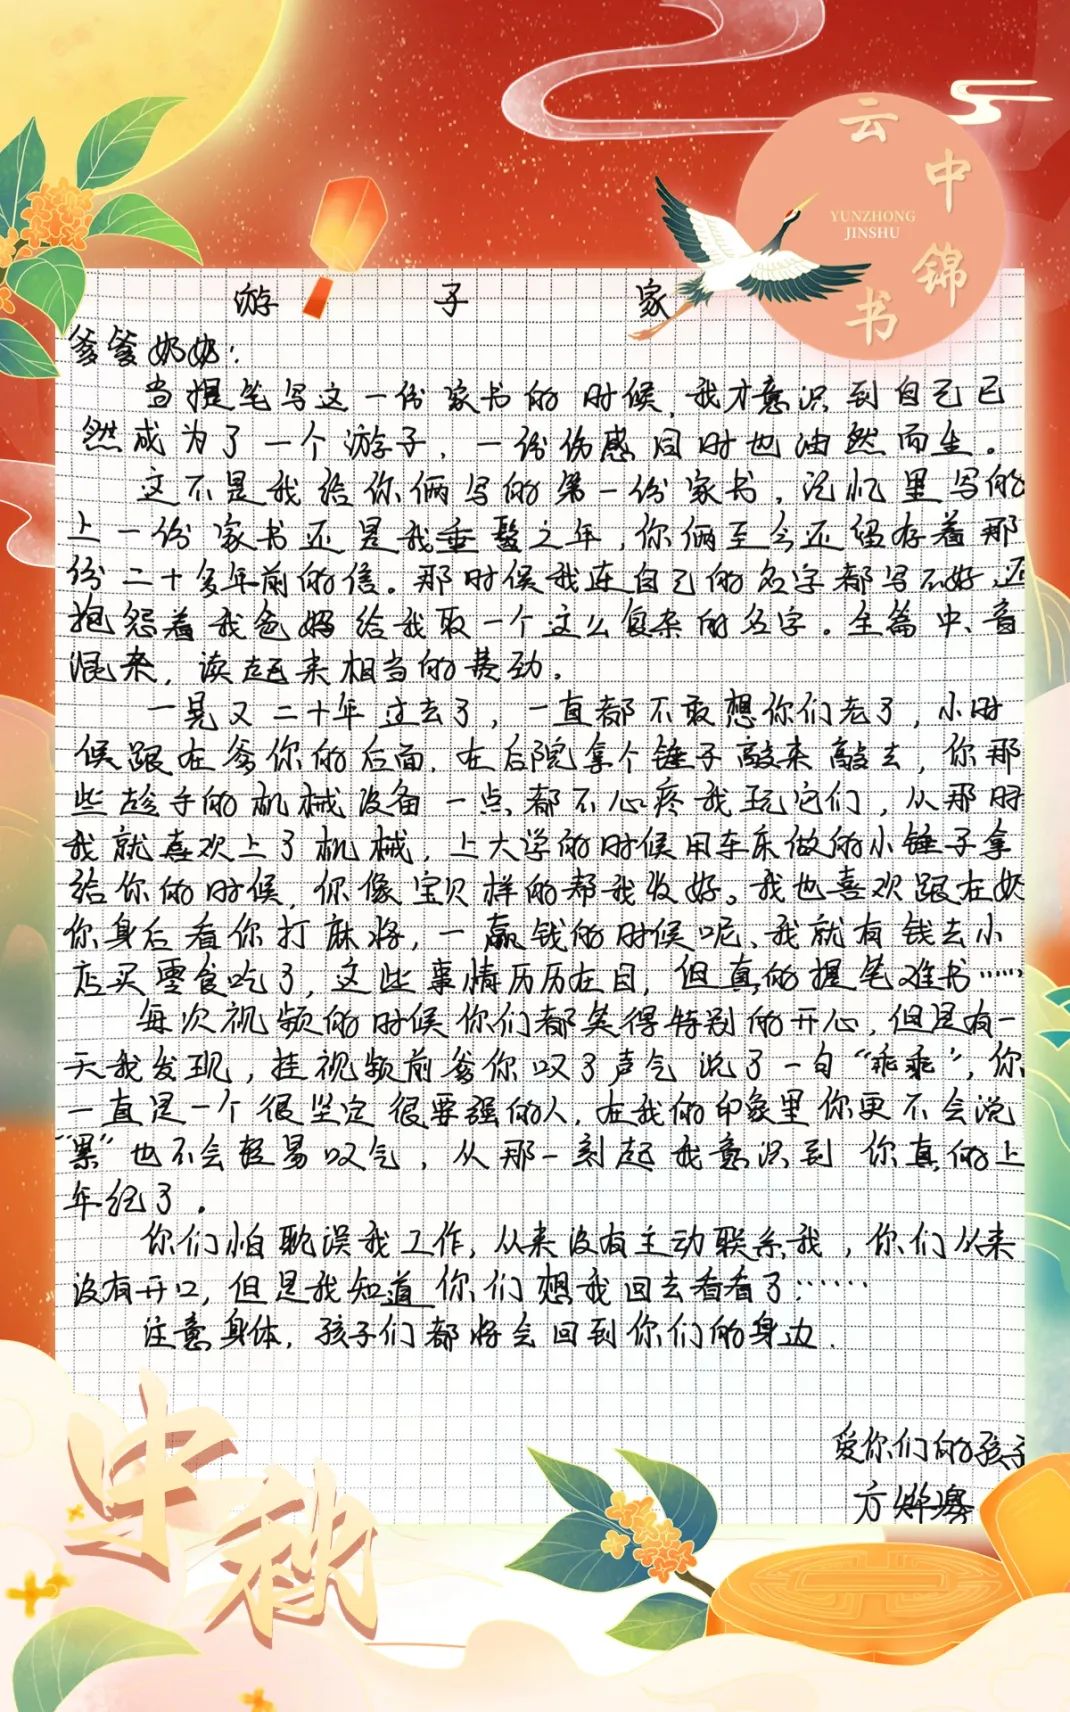 云中锦书
YUNZHONG
JINSHU
游 子 家
爹爹奶奶：
当提笔写这一份家书的时候，我才意识到自己已
然成为了一个游子，一份伤感同时也油然而生。
这不是我给你俩写的第一份家书，记忆里写的
上一份家书还是我垂髫之年，你俩至今还留存着那
份二十多年前的信。那时候我连自己的名字都写不好，还
抱怨着我爸妈给我取一个这么复杂的名字。全篇中、音
混夹，读起来相当的费劲。
一晃又二十年过去了，一直都不敢想你们老了，小时
候跟在爹你的后面，在后院拿个锤子敲来敲去，你那
些趁手的机械设备一点都不心疼我玩它们，从那时
我就喜欢上了机械，上大学的时候用车床做的小锤子拿
给你的时候，你像宝贝样的帮我收好。我也喜欢跟在奶
你身后看你打麻将，一赢钱的时候呢、我就有钱去小
店买零食吃了，这些事情历历在目，但真的握笔难书……
每次视频的时候你们都笑得特别的开心，但是有一
天我发现，挂视频前爹你叹了声气说了一句“乖乖”，你
一直是一个很坚定很要强的人，在我的印象里你更不会说
“累”也不会轻易叹气，从那一刻起我意识到你真的上
年纪了。
你们怕耽误我工作，从来没有主动联系我，你们从来
没有开口，但是我知道你们想我回去看看了……
注意身体，孩子们都将会回到你们的身边．
爱你们的孩子
方烨
中秋